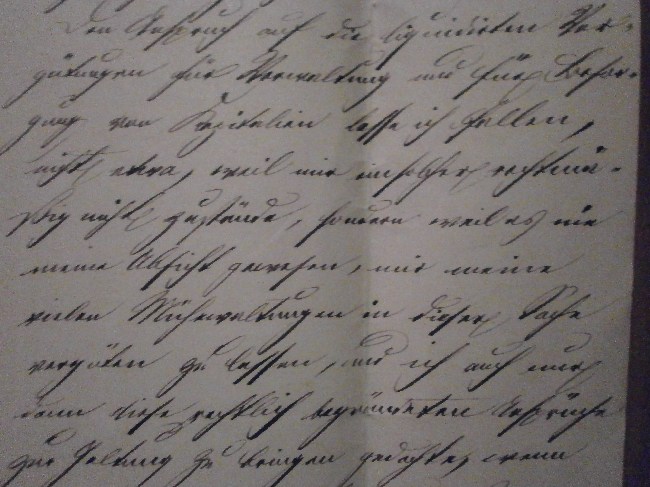 Den Anspruch auf die liquidirten Ver-
gütungen für Verwaltung und für Besor-
gung von Kapitalien lasse ich fallen,
nicht etwa, weil mir ein solcher rechtmä-
ßig nicht zustände, sondern weil es nie
meine Absicht gewesen, mir meine
vielen Mühewaltungen in dieser Sache
vergüten zu lassen, und ich auch nur
dann diese rechtlich begründeten Ansprüche
zur Geltung zu bringen gedachte, wenn